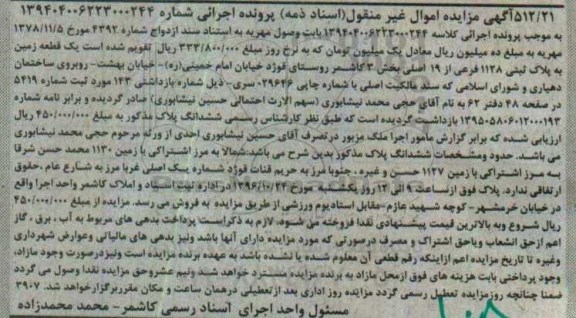 ۵۱۲/۲۱آگهی مزایده اموال غیر منقول(اسناد ذمه) پرونده اجرائی شماره ۱۳۹۴۰۴۰۰۶۲۲۳۰۰۰۲۴۴
به موجب پرونده اجرائی کلاسه ۱۳۹۴۰۴۰۰۶۲۲۳۰۰۰۲۴۴بابت وصول مهریه به استناد سند ازدواج شماره ۴۳۹۲ مورخ ۱۳۷۸/۱۱/۵
مهریه به مبلغ ده میلیون ریال معادل یک میلیون تومان که به نرخ روز مبلغ ۳۳۳/۸۰۰/۰۰۰ ریال تقویم شده است یک قطعه زمین
به پلاک ثبتی ۱۱۲۸ فرعی از ۱۹ اصلی بخش ۳ کاشمر روستای قوژد خیابان امام خمینی(ره)- خیابان بهشت- روبروی ساختمان
دهیاری و شورای اسلامی که سند مالکیت اصلی با شماره چاپی ۰۲۹۶۴۶ سری- ذیل شماره بازداشتی ۱۴۳ مورد ثبت شماره ۵۴۱۹
در صفحه ۴۸ دفتر ۶۲ به نام آقای حجی محمد نیشابوری (سهم الارث احتمالی حسین نیشابوری) صادر گردیده و برابر نامه شماره
۱۳۹۵۰۵۸۰۶۰۱۲۰۰۰۱۹۳ بازداشت گردیده است که طبق نظر کارشناس رسمی ششدانگ پلاک مذکور به مبلغ ۴۵۰/۰۰۰/۰۰۰ ریال
ارزیابی شده که برابر گزارش مامور اجرا ملک مزبور درتصرف آقای حسین نیشابوری احدی از ورثه مرحوم حجی محمد نیشابوری
می باشد. حدود ومشخصات ششدانگ پلاک مذکور بدین شرح می باشد:شمالا به مرز اشتراکی با زمین ۱۱۳۰ محمد حسن شرقا
به مرز اشتراکی با زمین ۱۱۲۷ حسین و غیره ، جنوبا مرز به حریم قنات قوژد شماره یک اصلی غربا مرز به شارع عام ،حقوق
ارتفاقی ندارد. پلاک فوق ازساعت ۹ الی ۱۲ روز یکشنبه مورخ ۱۳۹۶/۱۰/۲۴ دراداره ثبت اسناد و املاک کاشمر واحد اجرا واقع
در خیابان خرمشهر- کوچه شهید عازم-مقابل استادیوم ورزشی از طریق مزایده به فروش می رسد. مزایده از مبلغ ۴۵۰/۰۰۰/۰۰۰
ریال شروع وبه بالاترین قیمت پیشنهادی نقدا فروخته می شود، لازم به ذکراست پرداخت بدهی های مربوط به آب ، برق ، گاز
اعم ازحق انشعاب ویاحق اشتراک و مصرف درصورتی که مورد مزایده دارای آنها باشد ونیز بدهی های مالیاتی وعوارض شهرداری
وغیره تا تاریخ مزایده اعم ازاینکه رقم قطعی آن معلوم شده یا نشده باشد به عهده برنده مزایده است ونیزدرصورت وجود مازاد،
وجود پرداختی بابت هزینه های فوق ازمحل مازاد به برنده مزایده مسترد خواهد شد ونیم عشروحق مزایده نقدا وصول می گردد
ضمنا چنانچه روزمزایده تعطیل رسمی گردد مزایده روز اداری بعد ازتعطیلی درهمان ساعت و مکان مقرربرگزارخواهد شد. ۳۹۰۷
مسئولو واحد اجرای اسناد رسمی کاشمر- محمد محمدزاده